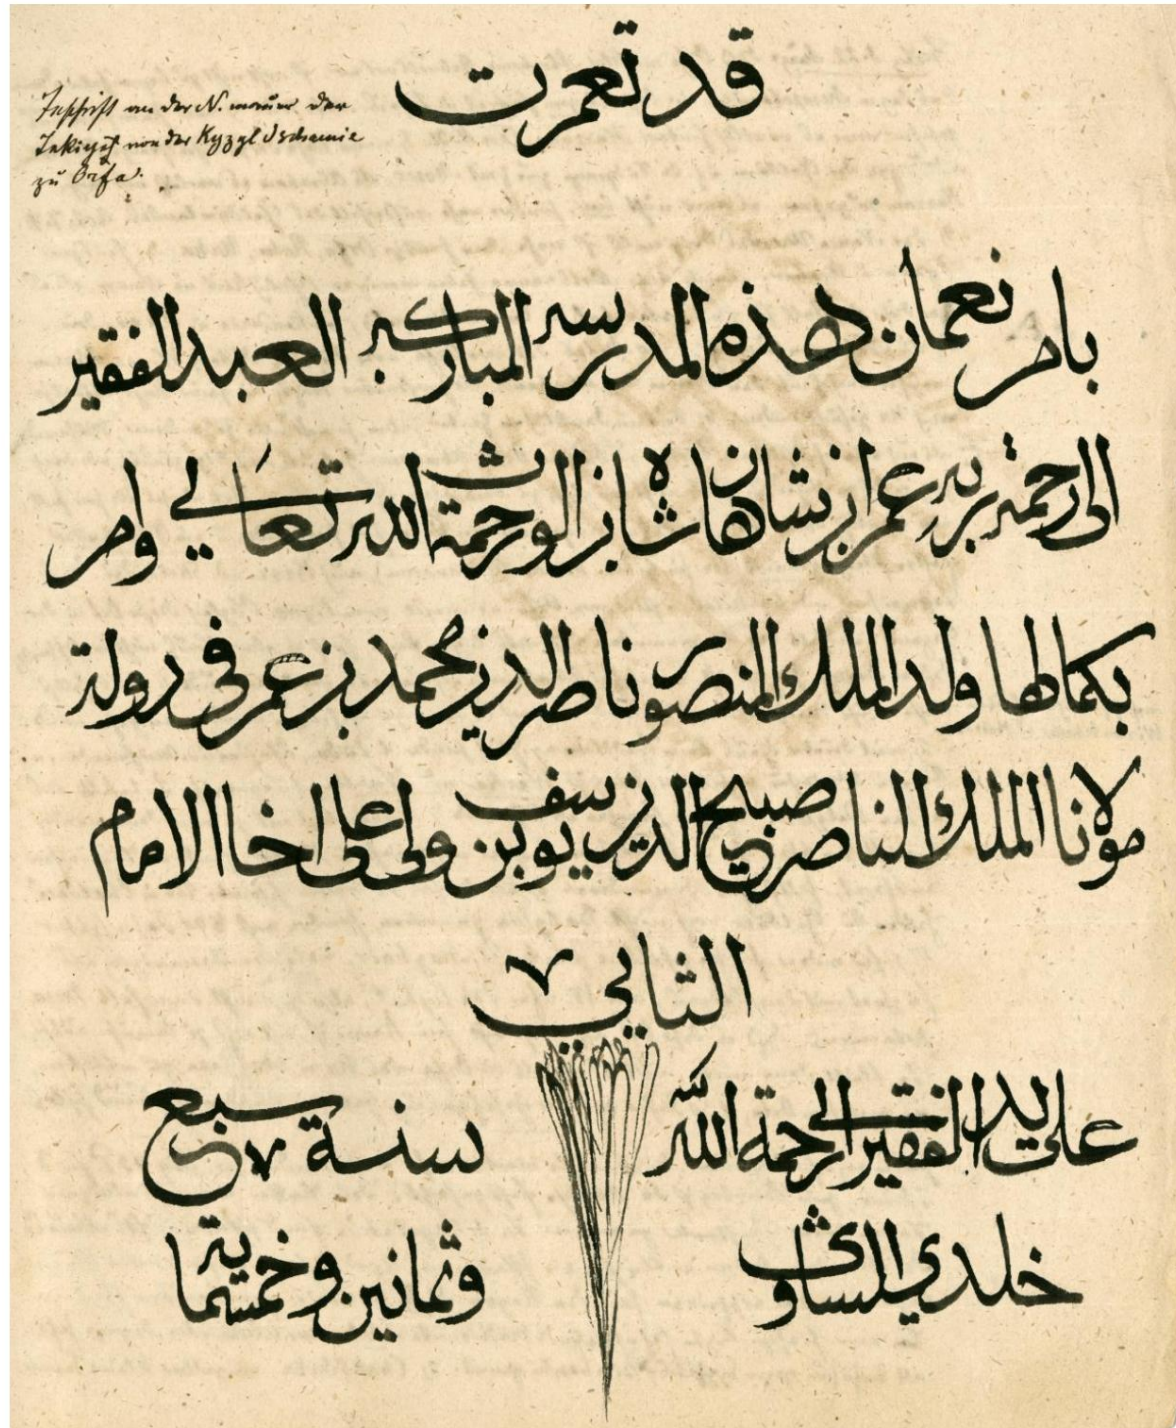 قد تعمرت
Inschrift an der N. mauer der
Tekiyeh von der Kyzyl Dschamie
zu Orfa.
بامر نعمان هذه المدرسة المباركة العبد الفقير
الى رحمة ربه عمر ابن شاهان شاه ابن الو رحمة الله تعالى وامر
بكمالها ولد الملك المنصور ناصر الدين محمد بن عمر فى دولة
مولانا الملك الناصر صبيح الدين يوسف بن ولى على اخا الامام
الثاني ٧
على يد الفقير الى رحمة الله
خلد
سنة سبع ٧
وثمانين وخمسماية